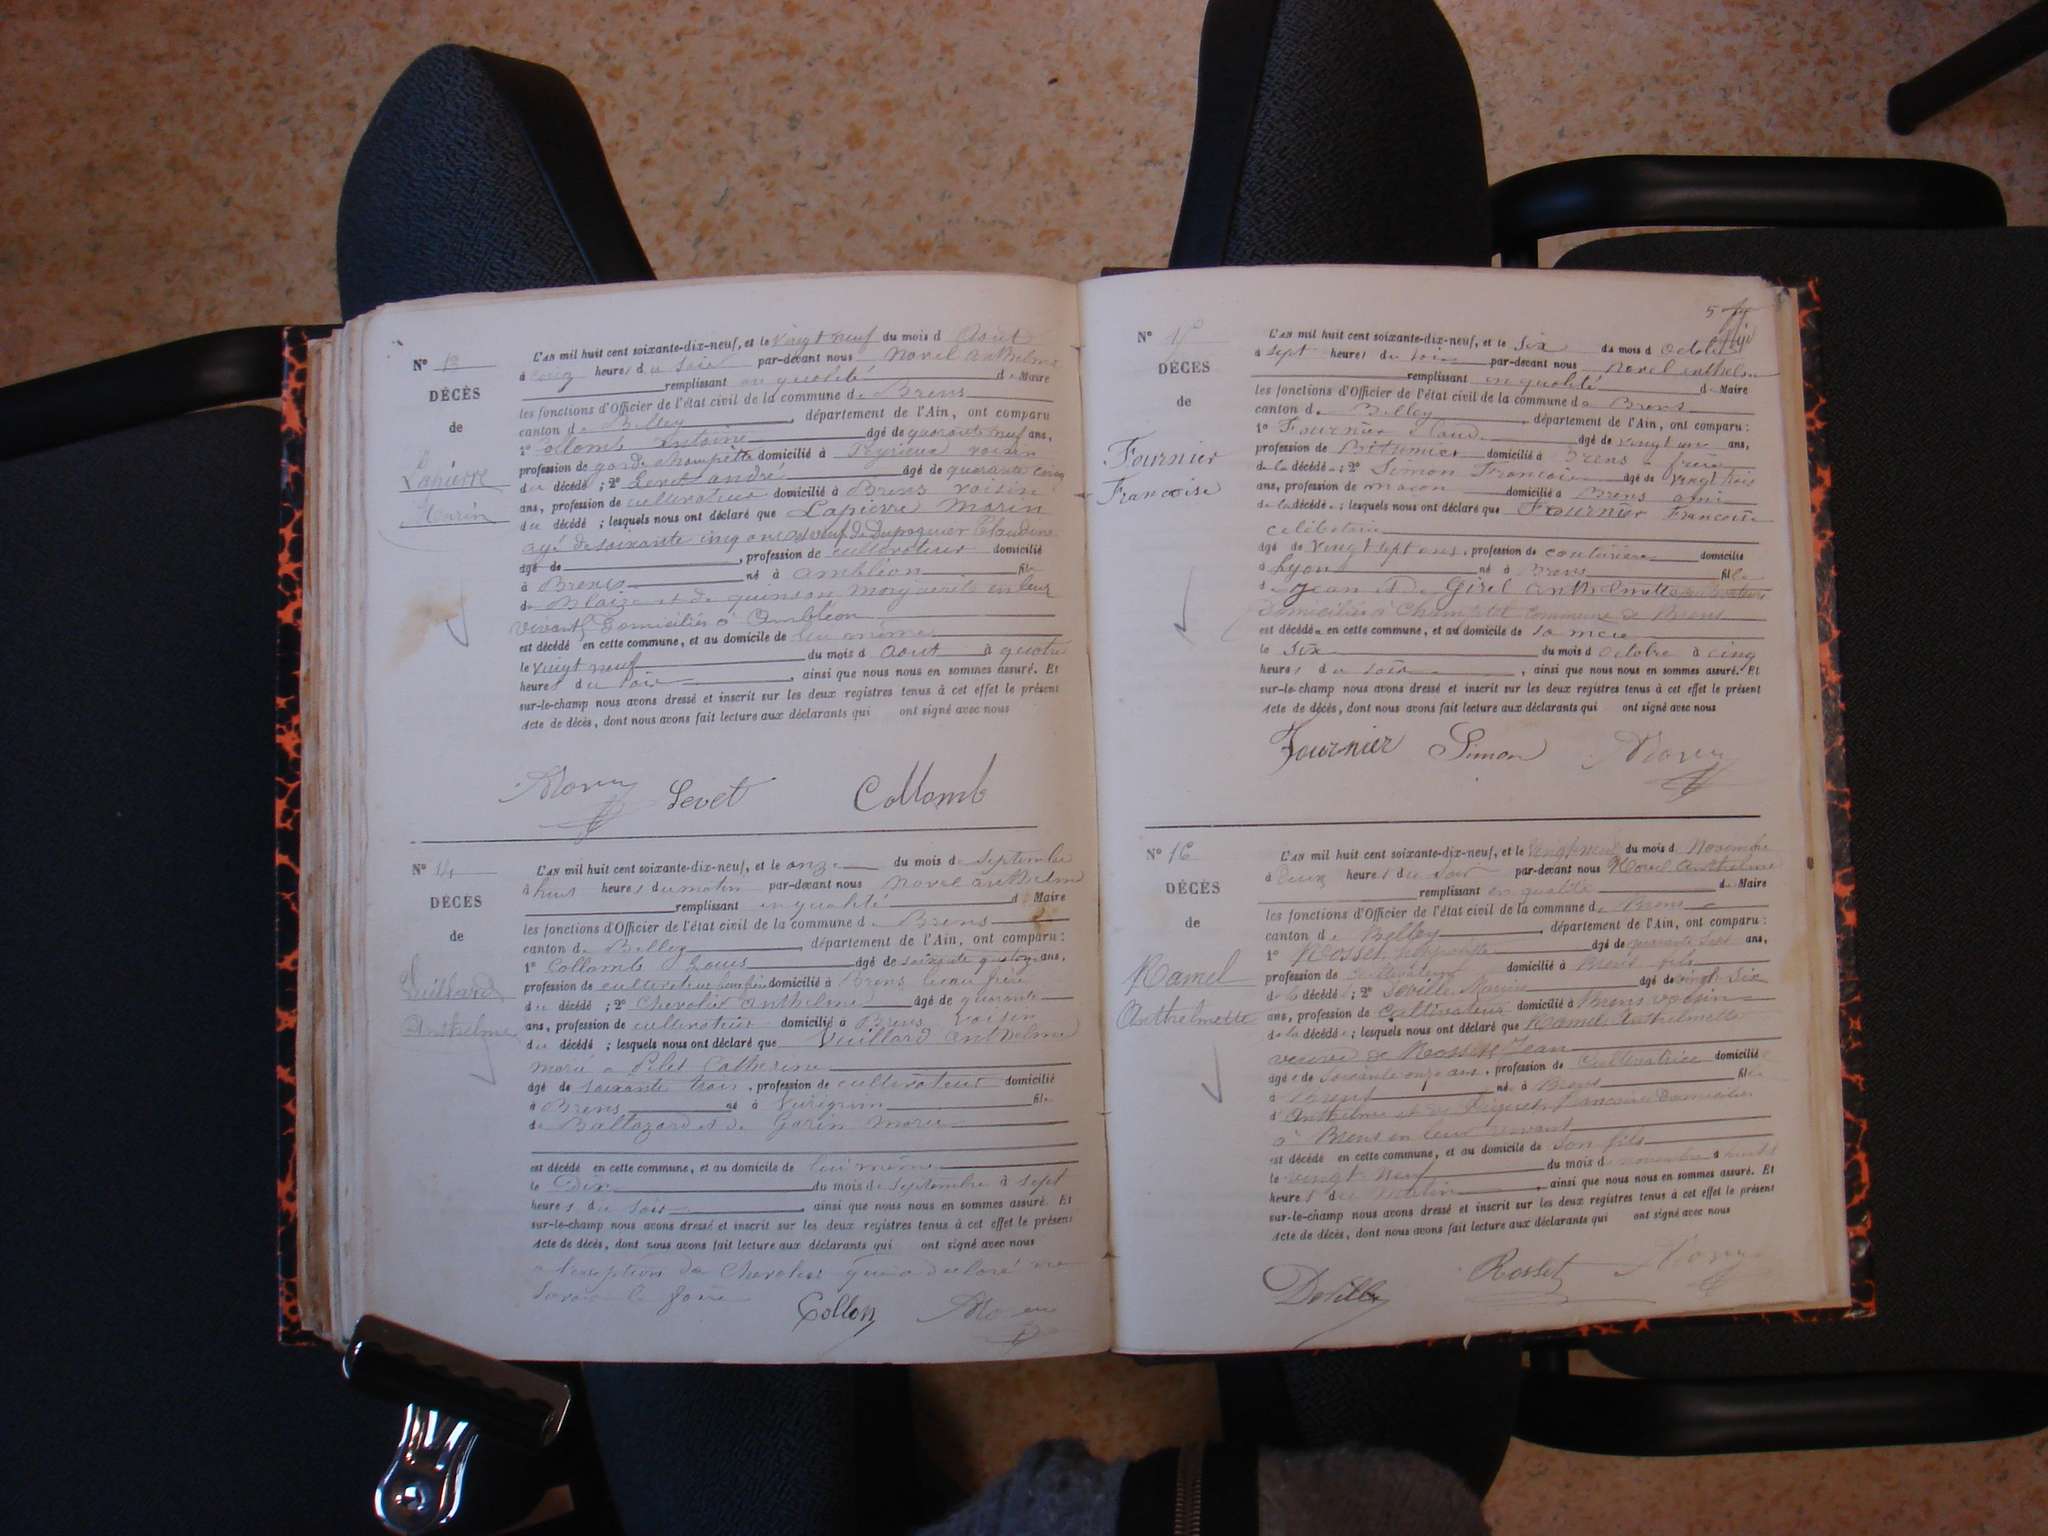 N° 13
DÉCÈS
de
Lapierre
Marin
L'AN mil huit cent soixante-dix-neuf, et le vingt neuf du mois d Aout
à cinq heures du soir par-devant nous Morel Anthelme
remplissant en qualité de Maire
les fonctions d'Officier de l'état civil de la commune de Brens
canton de Belley, département de l'Ain, ont comparu
1° Collomb Antoine âgé de quarante neuf ans,
profession de garde champêtre domicilié à Peyrieux voisin
du décédé ; 2° Levet andré âgé de quarante cinq
ans, profession de cultivateur domicilié à Brens voisin
du décédé ; lesquels nous ont déclaré que Lapierre Marin
agé de soixante cinq ans veuf de Claudine
âgé de , profession de cultivateur domicilié
à Brens né à Ambléon fils
de Blaize et de quinson Marguerite en leur
vivant Domiciliés à Ambléon
est décédé en cette commune, et au domicile de lui même
le vingt neuf du mois d aout à quatre
heures du soir, ainsi que nous nous en sommes assuré. Et
sur-le-champ nous avons dressé et inscrit sur les deux registres tenus à cet effet le présent
Acte de décès, dont nous avons fait lecture aux déclarants qui ont signé avec nous
Morel Levet Collomb
N° 14
DÉCÈS
de
Vuillard
Anthelme
L'AN mil huit cent soixante-dix-neuf, et le onze du mois de Septembre
à huit heures du matin par-devant nous Morel anthelme
remplissant en qualité d Maire
les fonctions d'Officier de l'état civil de la commune de Brens
canton de Belley, département de l'Ain, ont comparu :
1° Collomb Louis âgé de soixante quatorze ans,
profession de cultivateur domicilié à Brens beau frère
du décédé ; 2° Chevalier anthelme âgé de quarante
ans, profession de cultivateur domicilié à Brens voisin
du décédé ; lesquels nous ont déclaré que Vuillard anthelme
marié à Pilet Catherine
âgé de soixante trois, profession de cultivateur domicilié
à Brens né à Virignin fils
de Baltazard et de Garin Marie
est décédé en cette commune, et au domicile de lui même
le Dix du mois de septembre à sept
heures du soir, ainsi que nous nous en sommes assuré. Et
sur-le-champ nous avons dressé et inscrit sur les deux registres tenus à cet effet le présent
Acte de décès, dont nous avons fait lecture aux déclarants qui ont signé avec nous
a l'exception de Chevalier qui a declaré ne
savoir le faire
Collon Morel
5
N° 15
DÉCÈS
de
Fournier
Francoise
L'AN mil huit cent soixante-dix-neuf, et le six du mois d octobre
à sept heures du soir par-devant nous Morel anthelme
remplissant en qualité d Maire
les fonctions d'Officier de l'état civil de la commune de Brens
canton de Belley, département de l'Ain, ont comparu :
1° Fournier Claude âgé de vingt un ans,
profession de Bitumier domicilié à Brens frère
de la décédée ; 2° Simon Francois âgé de vingt trois
ans, profession de macon domicilié à Brens ami
de la décédée ; lesquels nous ont déclaré que Fournier Francoise
celibataire
âgé de vingt sept ans, profession de couturière domicilié
à Lyon né à Brens fille
de Jean et de Girel Anthelmette cultivateurs
domiciliés à Champtel commune de Brens
est décédée en cette commune, et au domicile de sa mere
le Six du mois d octobre à cinq
heures du soir, ainsi que nous nous en sommes assuré. Et
sur-le-champ nous avons dressé et inscrit sur les deux registres tenus à cet effet le présent
Acte de décès, dont nous avons fait lecture aux déclarants qui ont signé avec nous
Fournier Simon Morel
N° 16
DÉCÈS
de
Ramel
Anthelmette
L'AN mil huit cent soixante-dix-neuf, et le vingt neuf du mois d Novembre
à Deux heures du soir par-devant nous Morel Anthelme
remplissant en qualité de Maire
les fonctions d'Officier de l'état civil de la commune de Brens
canton de Belley, département de l'Ain, ont comparu :
1° Rosset âgé de quarante sept ans,
profession de cultivateur domicilié à Brens fils
de la décédée ; 2° âgé de vingt six
ans, profession de Cultivateur domicilié à Brens voisin
de la décédée ; lesquels nous ont déclaré que Ramel Anthelmette
veuve de Rosset Jean
âgée de soixante onze ans, profession de Cultivatrice domicilié
à Brens né à Brens fille
d'Anthelme et de francoise Domiciliés
à Brens en leur vivant
est décédé en cette commune, et au domicile de son fils
le vingt neuf du mois de novembre à huit
heures du matin, ainsi que nous nous en sommes assuré. Et
sur-le-champ nous avons dressé et inscrit sur les deux registres tenus à cet effet le présent
Acte de décès, dont nous avons fait lecture aux déclarants qui ont signé avec nous
Rosset Morel